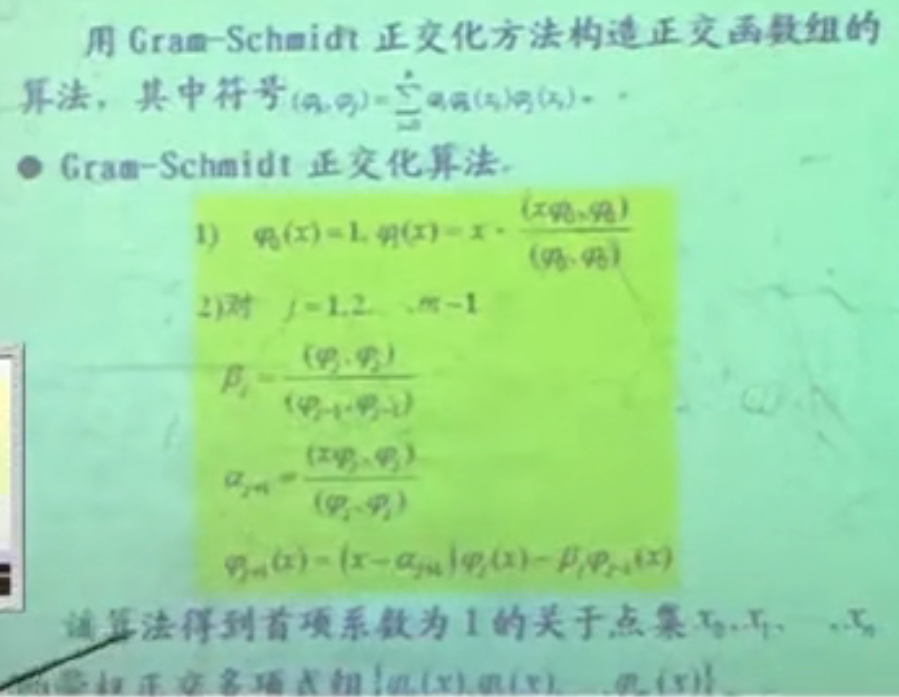 用 Gram-Schmidt 正交化方法构造正交函数组的
算法，其中符号(φₖ,φⱼ)=∑ωᵢφₖ(xᵢ)φⱼ(xᵢ)。
● Gram-Schmidt 正交化算法.
1) φ₀(x)=1, φ₁(x)=x-(xφ₀,φ₀)/(φ₀,φ₀)
2)对 j=1,2,…,m-1
βⱼ=(φⱼ,φⱼ)/(φⱼ₋₁,φⱼ₋₁)
αⱼ₊₁=(xφⱼ,φⱼ)/(φⱼ,φⱼ)
φⱼ₊₁(x)=(x-αⱼ₊₁)φⱼ(x)-βⱼφⱼ₋₁(x)
该算法得到首项系数为 1 的关于点集 x₀,x₁,…,xₙ
的带权正交多项式组{φ₀(x),φ₁(x),…,φₘ(x)}